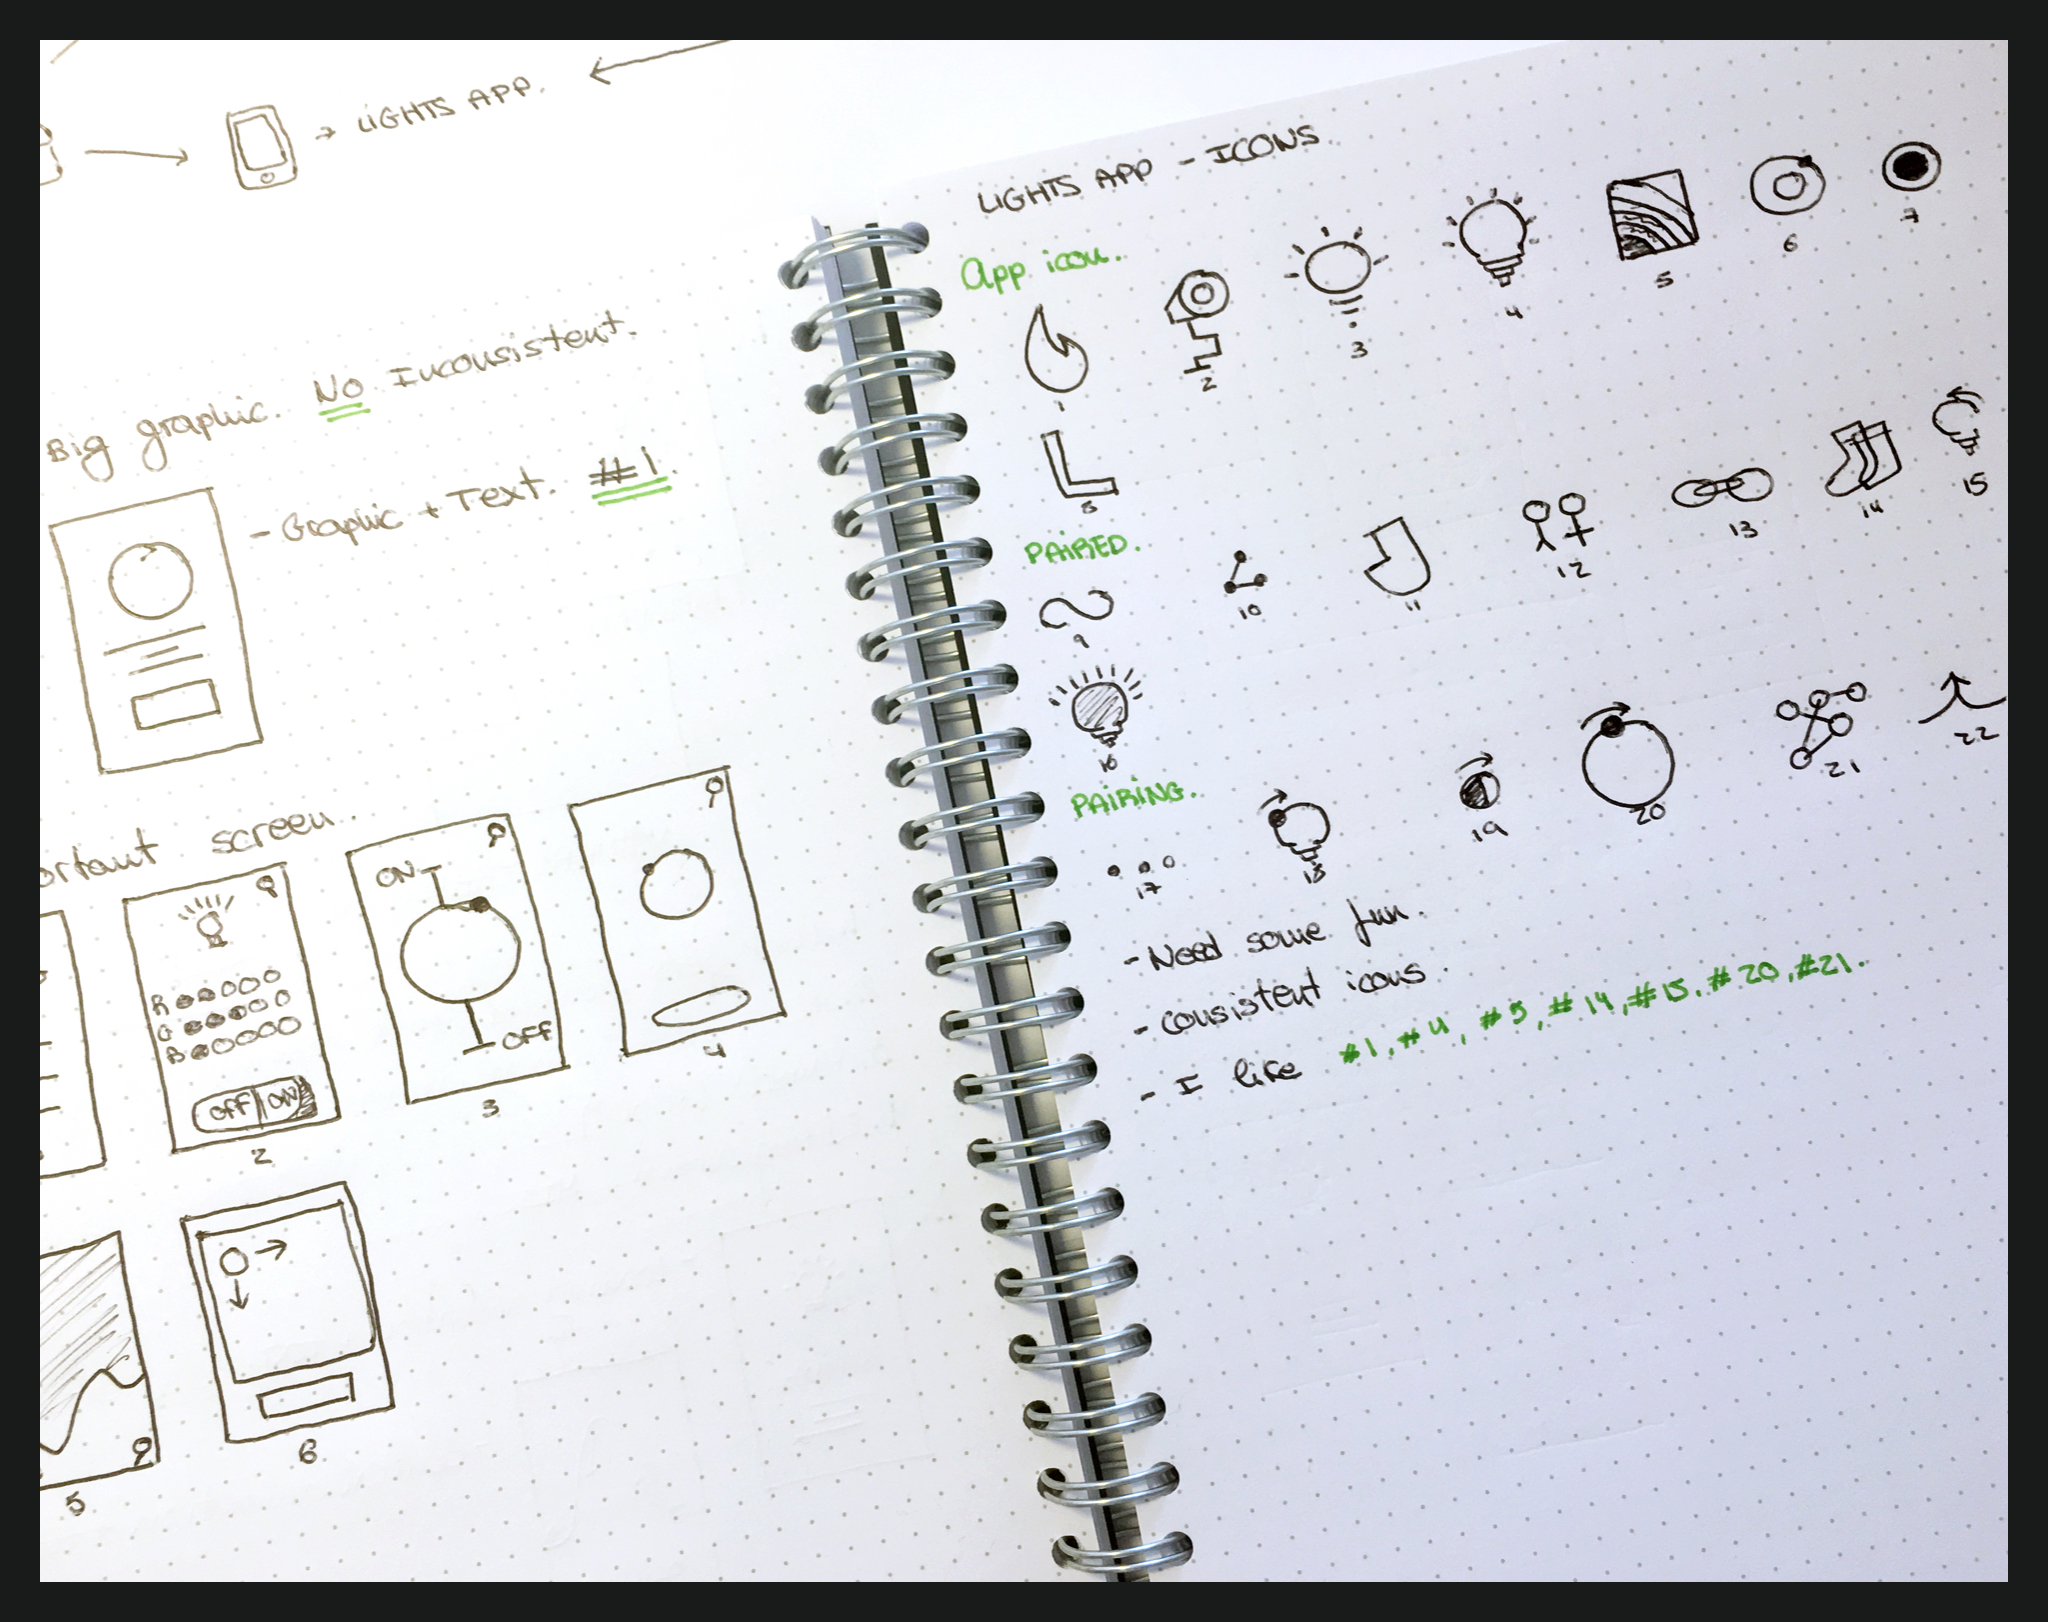 → LIGHTS APP.
Big graphic. NO Inconsistent.
- Graphic + Text. #1.
ortant screen.
R
G
B
OFF ON
2
ON
OFF
3
4
5
6
LIGHTS APP - ICONS.
App icon.
1 2 3 4 5 6 7
8
PAIRED.
9 10 11 12 13 14 15
16
PAIRING.
17 18 19 20 21 22
- Need some fun.
- consistent icons.
- I like #1, #4, #5, #14, #15, #20, #21.